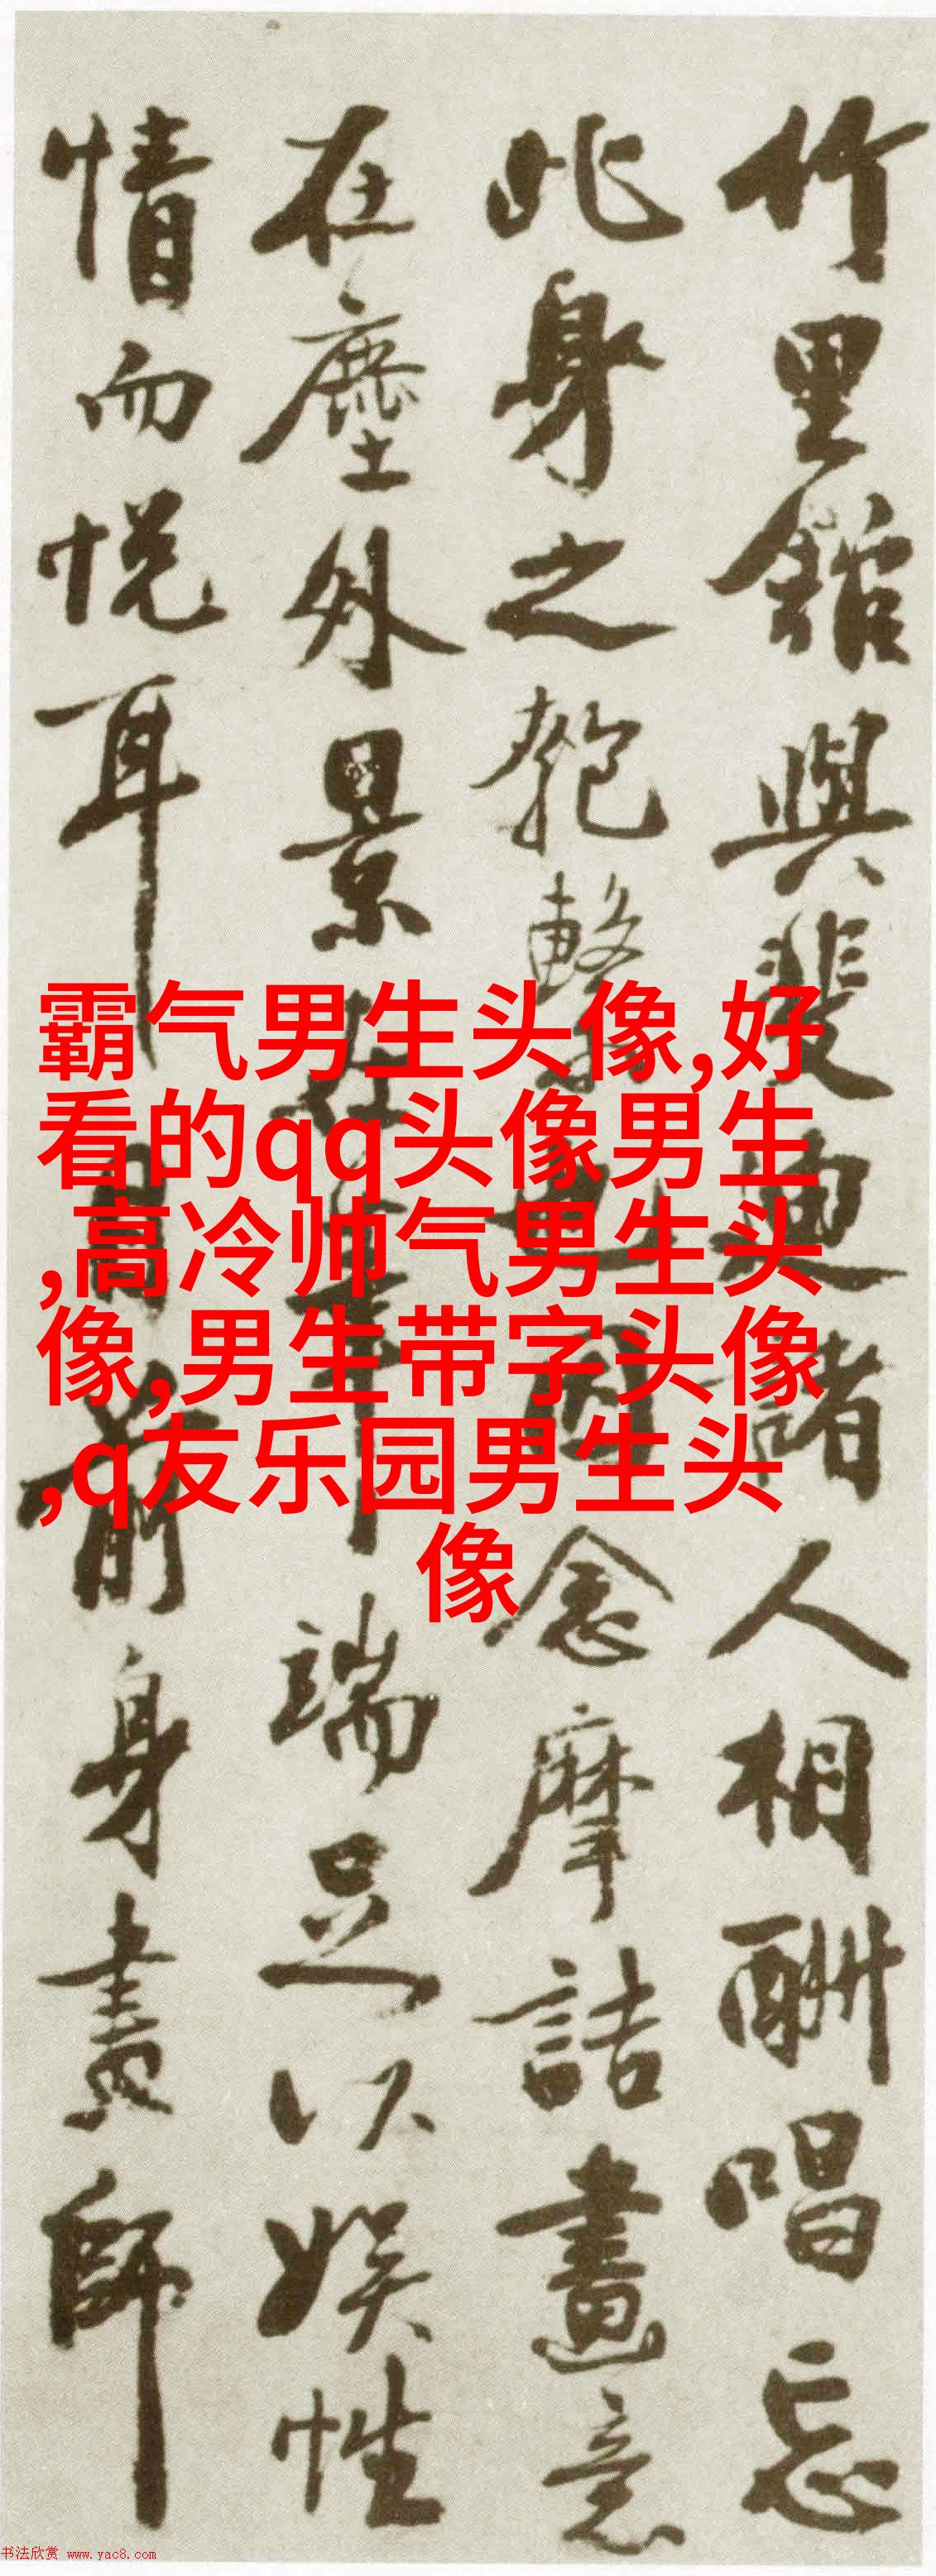 竹里館與斐迪諸人相酬唱忘
此身之匏繫也因念摩詰畫意
在塵外景在筆端足以娛性
情而悦耳目前身畫師
霸气男生头像,好
看的qq头像男生
,高冷帅气男生头
像,男生带字头像
,q友乐园男生头
像
书法欣赏 www.yac8.com